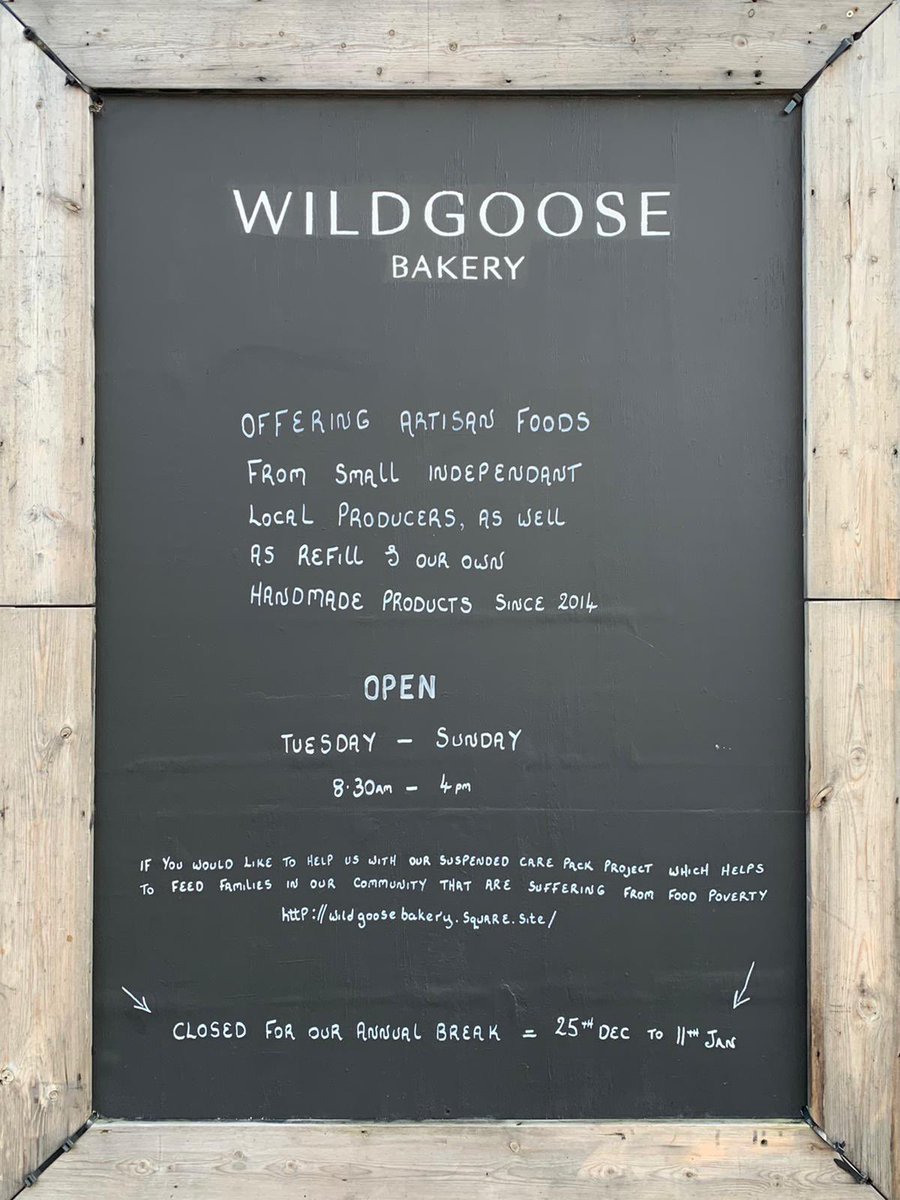 WILDGOOSE
BAKERY
OFFERING ARTISAN FOODS
FROM SMALL INDEPENDANT
LOCAL PRODUCERS, AS WELL
AS REFILL & OUR OWN
HANDMADE PRODUCTS SINCE 2014
OPEN
TUESDAY – SUNDAY
8·30AM – 4pm
IF YOU WOULD LIKE TO HELP US WITH OUR SUSPENDED CARE PACK PROJECT WHICH HELPS
TO FEED FAMILIES IN OUR COMMUNITY THAT ARE SUFFERING FROM FOOD POVERTY
http://wildgoosebakery.square.site/
CLOSED FOR OUR ANNUAL BREAK = 25TH DEC TO 11TH JAN